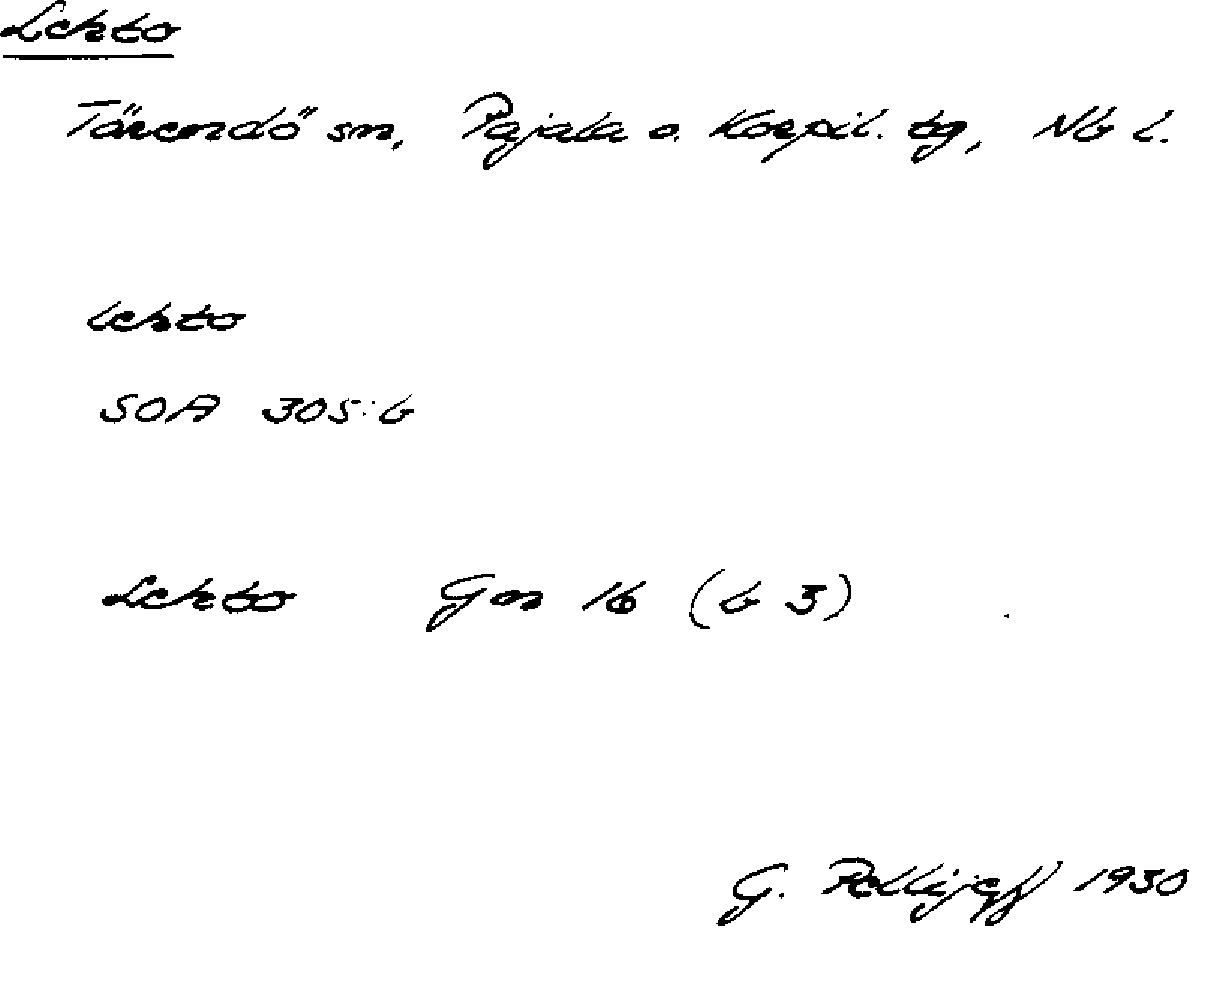 Lehto
Tärendö sn, Pajala o. Korpil. tg, Nb l.
lehto
SOA 305:6
Lehto Gm 16 (b 3)
G. Pellijeff 1930